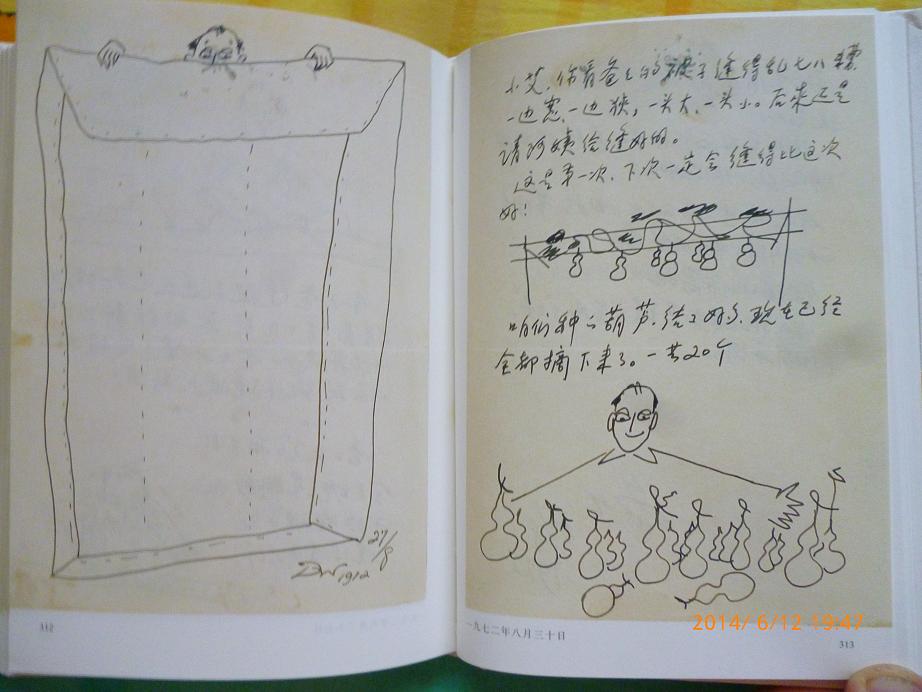 27/8
1972
312
小艾,你看爸爸的被子缝得乱七八糟
一边宽、一边狭,一头大、一头小。后来还是
请阿姨给缝好的。
这是第一次,下次一定会缝得比这次
好!
咱们种的葫芦,结了好多,现在已经
全都摘下来了。一共20个
一九七二年八月三十日
2014/ 6/12 19:47
313